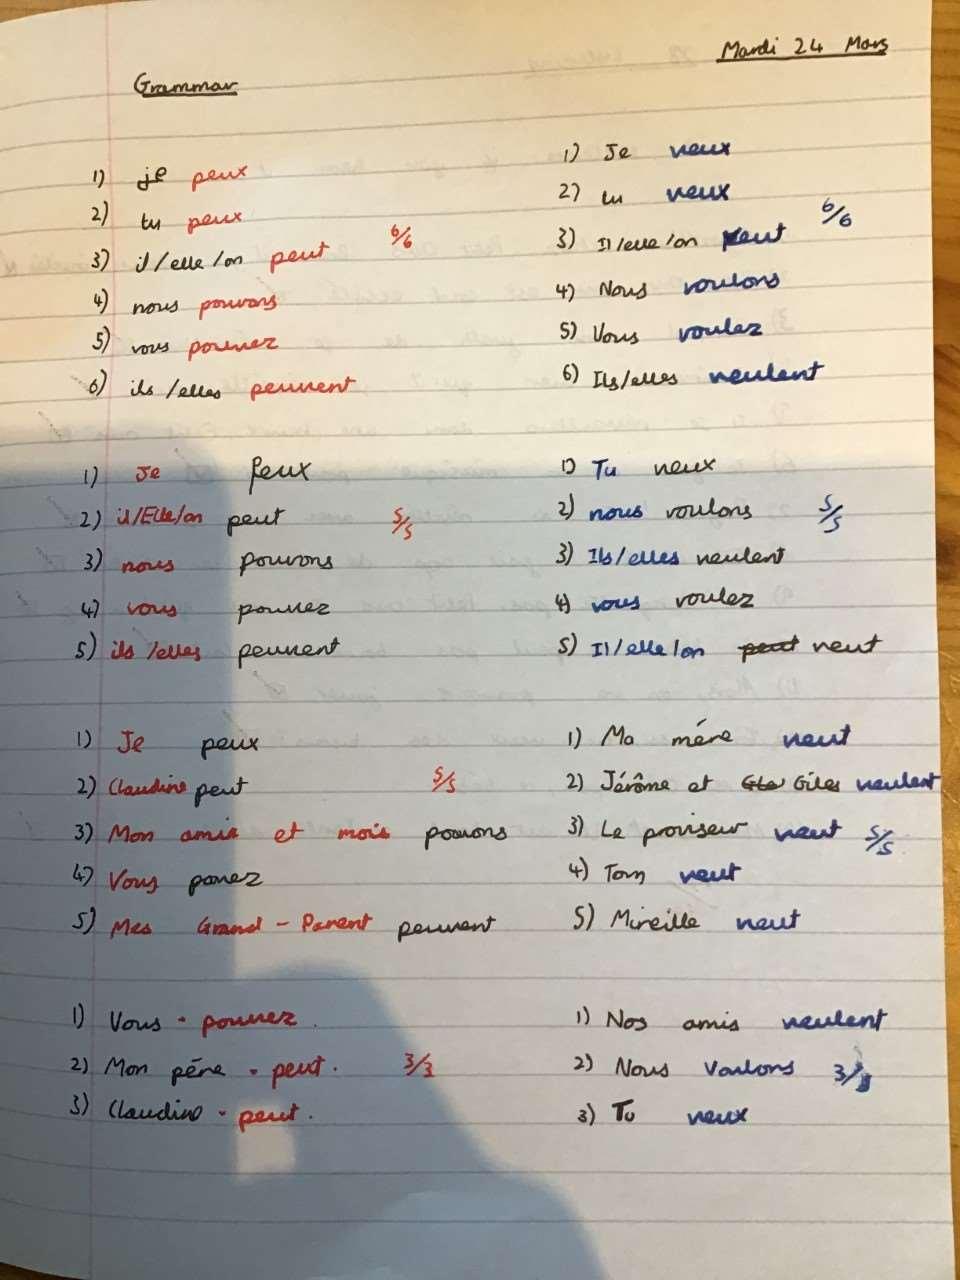 Mardi 24 Mars
Grammar
1) je peux
2) tu peux
3) il/elle/on peut 6/6
4) nous pouvons
5) vous pouvez
6) ils/elles peuvent
1) Je veux
2) tu veux
3) Il/elle/on veut 6/6
4) Nous voulons
5) Vous voulez
6) Ils/elles veulent
1) Je peux
2) il/Elle/on peut 5/5
3) nous pouvons
4) vous pouvez
5) ils/elles peuvent
1) Tu veux
2) nous voulons 5/5
3) Ils/elles veulent
4) vous voulez
5) Il/elle/on peut veut
1) Je peux
2) Claudine peut 5/5
3) Mon amis et mois pouvons
4) Vous pouvez
5) Mes Grand-Parent peuvent
1) Ma mére veut
2) Jérôme et Gile Giles veulent
3) Le proviseur veut 5/5
4) Tom veut
5) Mireille veut
1) Vous • pouvez.
2) Mon pére • peut. 3/3
3) Claudine • peut.
1) Nos amis veulent
2) Nous voulons 3/3
3) Tu veux